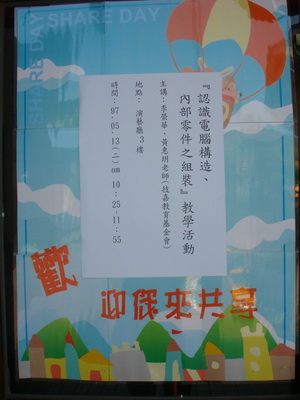 SHARE DAY
SHARE DAY
『認識電腦構造、
內部零件之組裝』教學活動
主講：李榮華、黃惠玥老師(技嘉教育基金會)
地點： 演藝廳 3 樓
時間：97.05.13(二) am 10：25-11：55
歡
迎您來共享